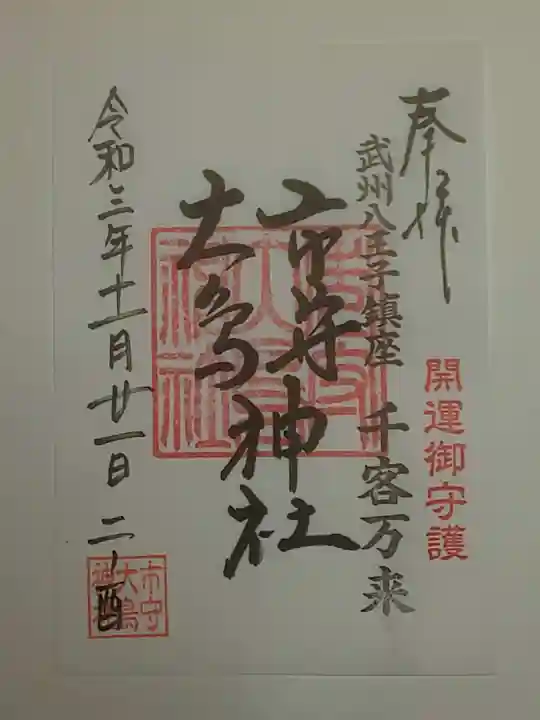 奉拝
開運御守護
武州八王子鎮座 千客万来
市守
大鳥神社
令和三年十一月廿一日 二ノ酉
市守
大鳥
神社